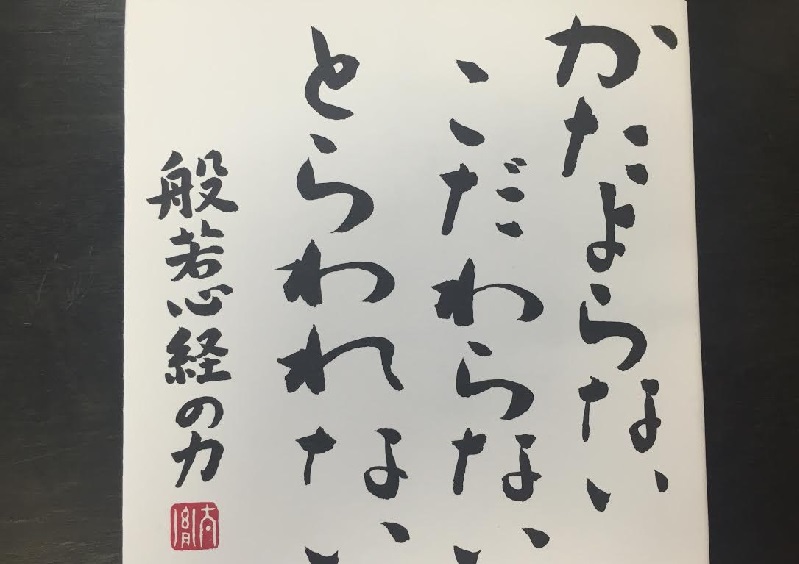 かたよらない
こだわらない
とらわれない
般若心経の力